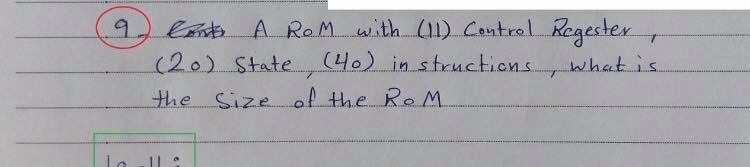 9 - A RoM with (11) Control Regester,
(20) State, (40) instructions, what is
the Size of the RoM